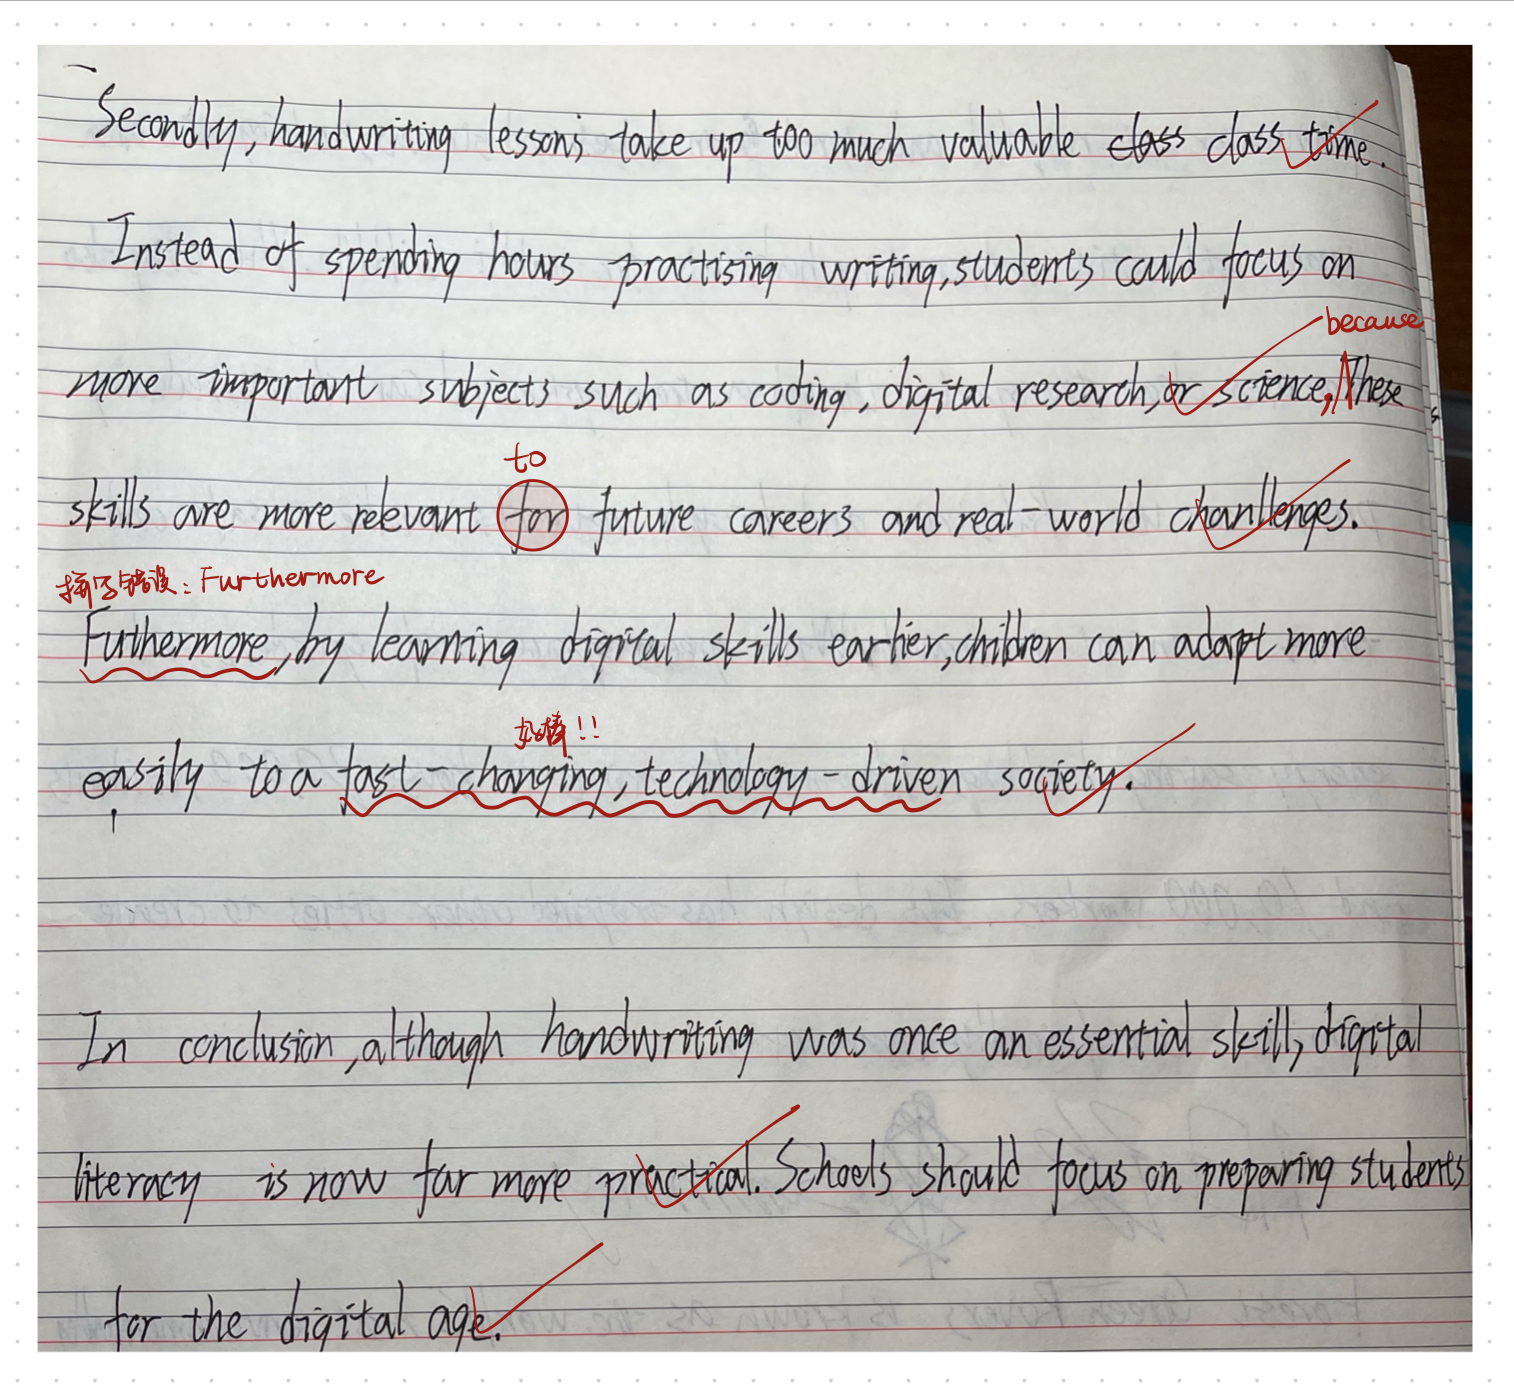 Secondly, handwriting lessons take up too much valuable class class time.
Instead of spending hours practising writing, students could focus on
because
more important subjects such as coding, digital research, or science, These
to
skills are more relevant for future careers and real-world chanllenges.
拼写错误: Furthermore
Futhermore, by learning digital skills earlier, children can adapt more
好棒!!
easily to a fast-changing, technology-driven society.
In conclusion, although handwriting was once an essential skill, digital
literacy is now far more practical. Schools should focus on preparing students
for the digital age.